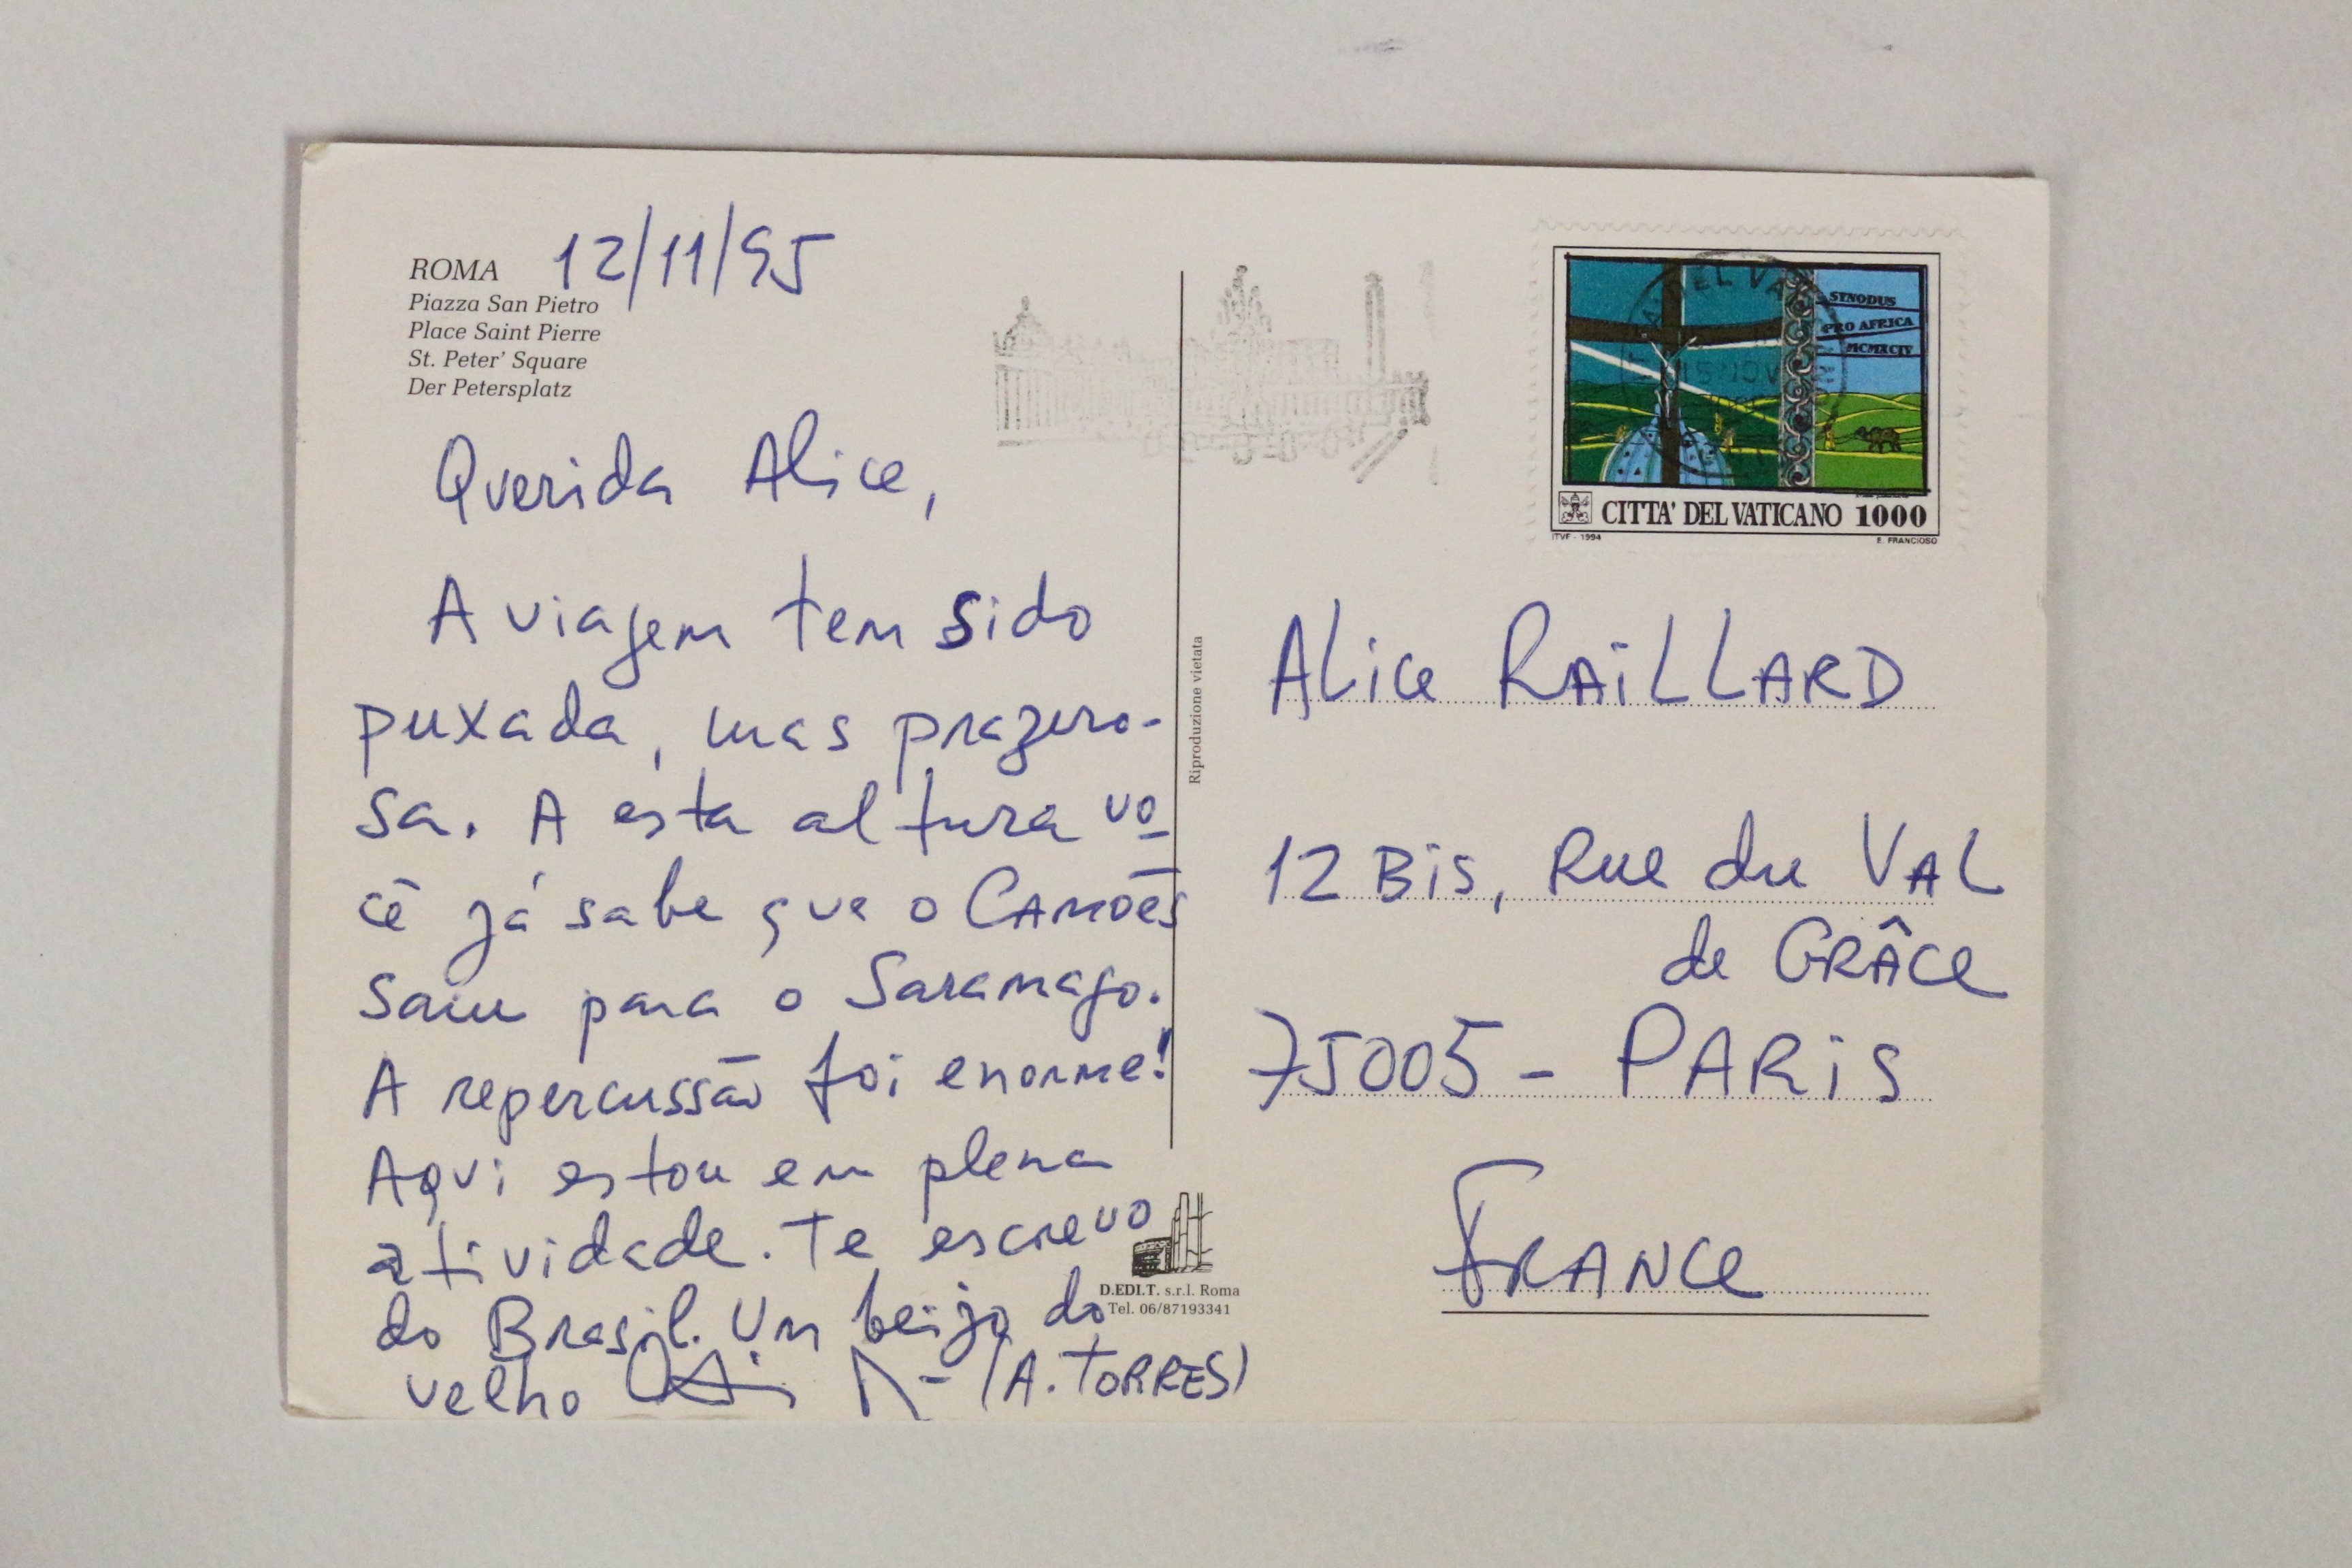 ROMA 12/11/95
Piazza San Pietro
Place Saint Pierre
St. Peter' Square
Der Petersplatz
Querida Alice,
A viagem tem sido
puxada, mas prazero-
sa. A esta altura vo
cê já sabe que o CAMÕES
saiu para o Saramago.
A repercussão foi enorme!
Aqui estou em plena
atividade. Te escrevo
do Brasil. Um beijo do
velho (A. TORRES)
Riproduzione vietata
D.EDI.T. s.r.l. Roma
Tel. 06/87193341
SYNODUS
PRO AFRICA
MCMXCIV
CITTA' DEL VATICANO 1000
ITVF - 1994 E. FRANCIOSO
ALice RAiLLARD
12 Bis, Rue du VAL
de GRÂCe
75005 - PARiS
FRANCe